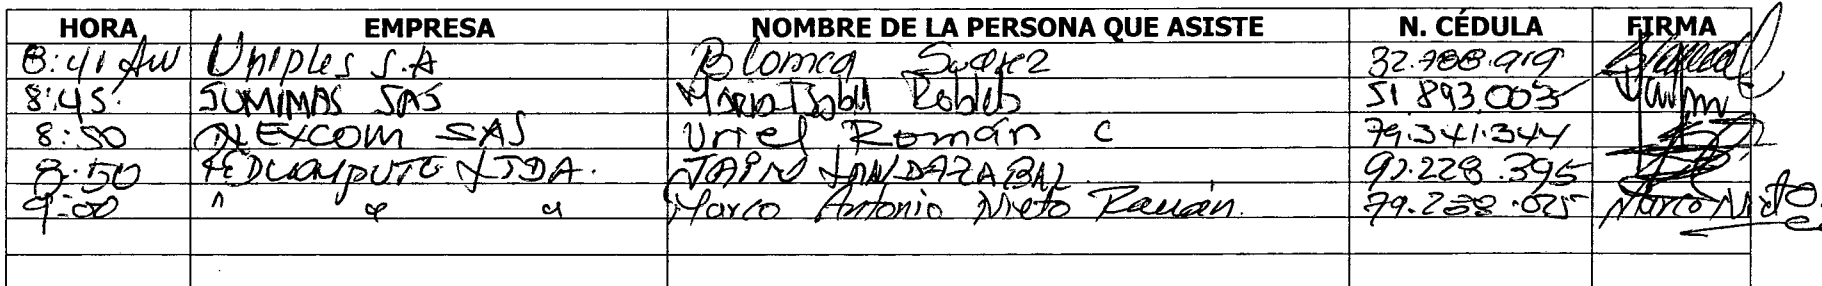 HORA EMPRESA NOMBRE DE LA PERSONA QUE ASISTE N. CÉDULA FIRMA
8:41 AM Uniples S.A Blanca Suarez
8:45. SUMIMAS SAS Maria Isabel Robles 51 893.003
8:50 ALEXCOM SAS Uriel Román C 79.341.344
8:50 REDCOMPUTO LTDA. 92.228.395
9:00 " " " Marco Antonio Nieto Marco Nieto